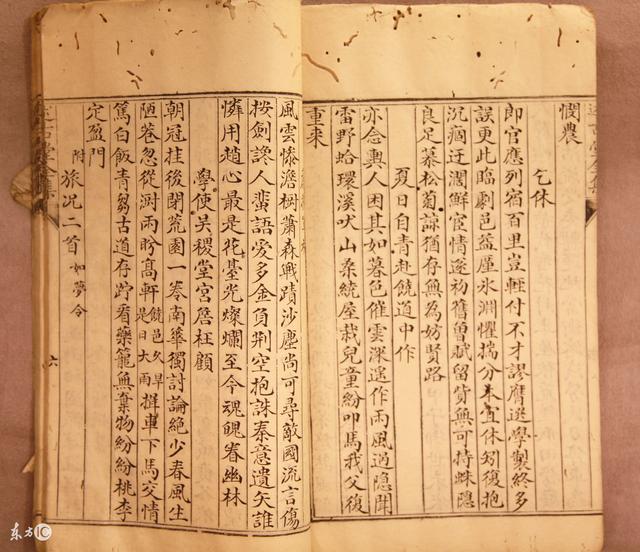 憫農
乞休
郎官應列宿百里豈輕付不才謬膺選學製終多
誤更此臨劇邑益厪氷淵懼揣分本宜休矧復抱
沉痼迂濶鮮宦情遂初舊曾賦留貲無可持蛛隱
良足慕松菊諒猶存無為妨賢路
夏日自青赴饒道中作
亦念輿人困其如暮色催雲深遥作雨風過隱聞
雷野蛤環溪吠山桑統屋栽兒童紛叩馬我父復
重來
風雲慘澹樹蕭森戰蹟沙塵尚可尋敵國流言傷
按劍讒人蜚語愛多金負荆空抱誅秦意遺矢誰
憐用趙心最是花臺光燦爛至今魂魄眷幽林
學使吴稷堂宫詹枉顧
朝冠挂後閉荒園一卷南華獨討論絶少春風生
陋巷忽從澍雨盼高軒饒邑久旱是日大雨撵車下馬交情
篤白飯青芻古道存貯看藥籠無棄物紛紛桃李
定盈門
附旅况二首如夢令
六
东方IC